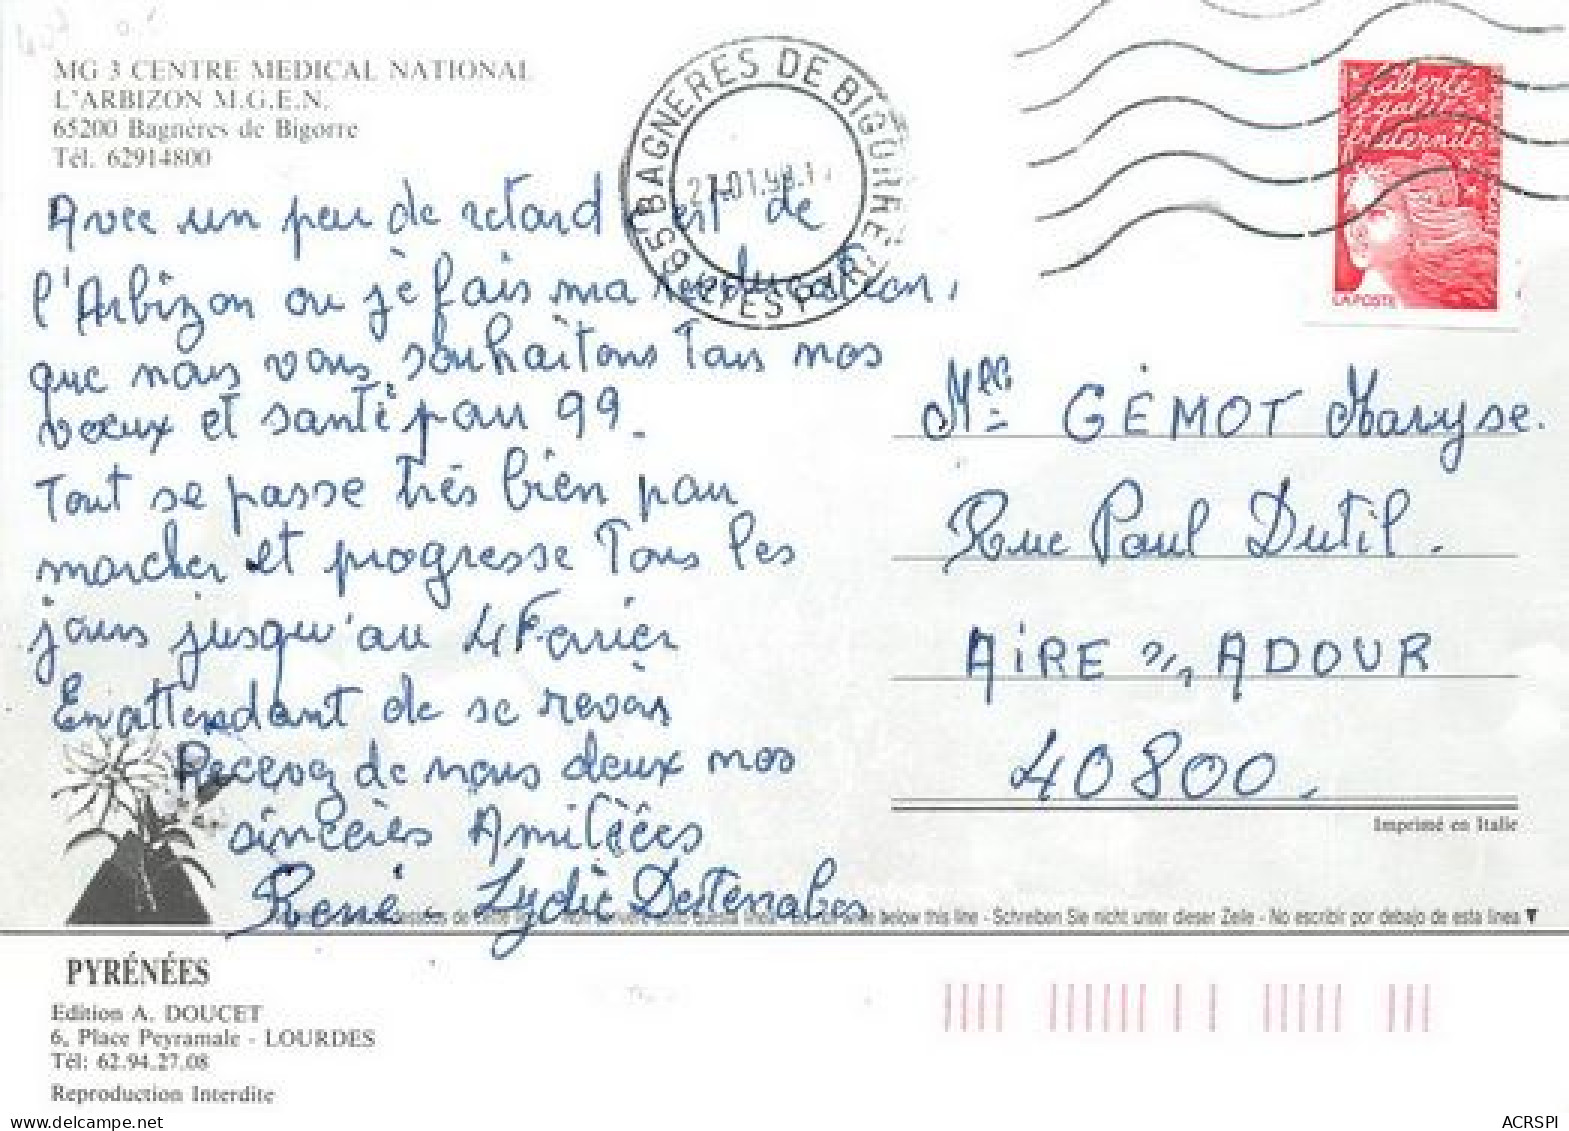 MG 3 CENTRE MEDICAL NATIONAL
L'ARBIZON M.G.E.N.
65200 Bagnères de Bigorre
Tél. 62914800
65 BAGNERES DE BIGORRE
HTES PYRENEES
Liberté
égalité
fraternité
LA POSTE
Avec un peu de retard c'est de
l'Arbizon ou je fais ma reeducation,
que nous vous souhaitons Tous nos
voeux et santé pour 99.
Tout se passe très bien pour
marcher et progresse Tous les
jours jusqu'au 4 Fevrier
En attendant de se revoir
Recevez de nous deux nos
sincères Amitiées
René Lydie
Mlle GÉMOT Maryse.
Rue Paul Dutil.
AiRE s/, ADOUR
40800.
Imprimé en Italie
below this line - Schreiben Sie nicht unter dieser Zeile - No escribir por debajo de esta linea ▼
PYRÉNÉES
Edition A. DOUCET
6, Place Peyramale - LOURDES
Tél: 62.94.27.08
Reproduction Interdite
delcampe.net
ACRSPI